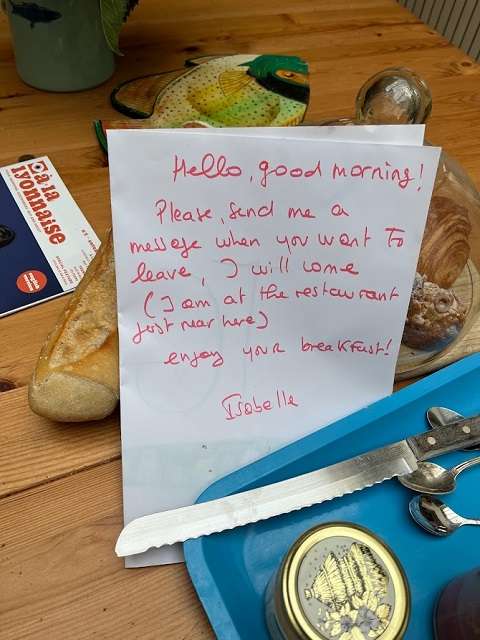 Hello, good morning!
Please, send me a
message when you want To
leave, I will come
(I am at the restaurant
just near here)
enjoy your breakfast!
Isabelle
à la
lyonnaise